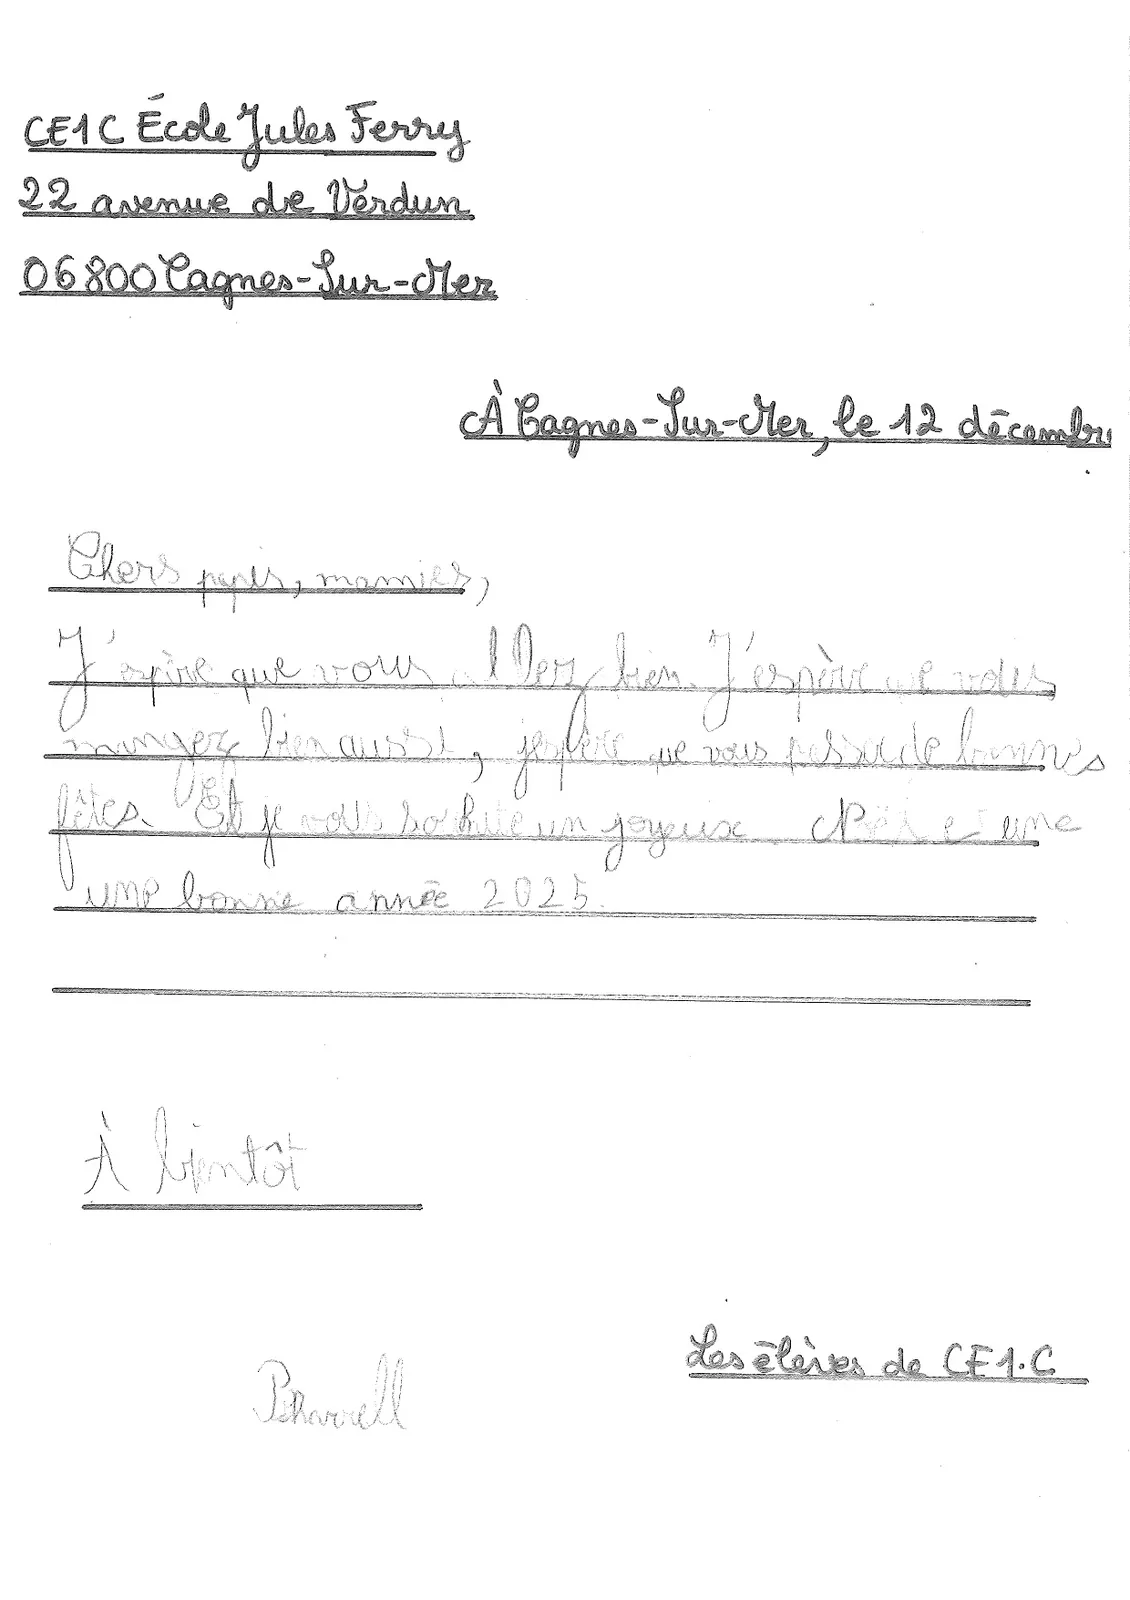 CE1C École Jules Ferry
22 avenue de Verdun
06800 Cagnes-Sur-Mer
À Cagnes-Sur-Mer, le 12 décembr
Chers papis, mamies,
J'espère que vous allez bien. J'espère que vous
mangez bien aussi, j'espère que vous passer de bonnes
fêtes. Et je vous souhaite un joyeux Noël et une
une bonne année 2025.
À bientôt
Les élèves de CE1.C
Pharrell